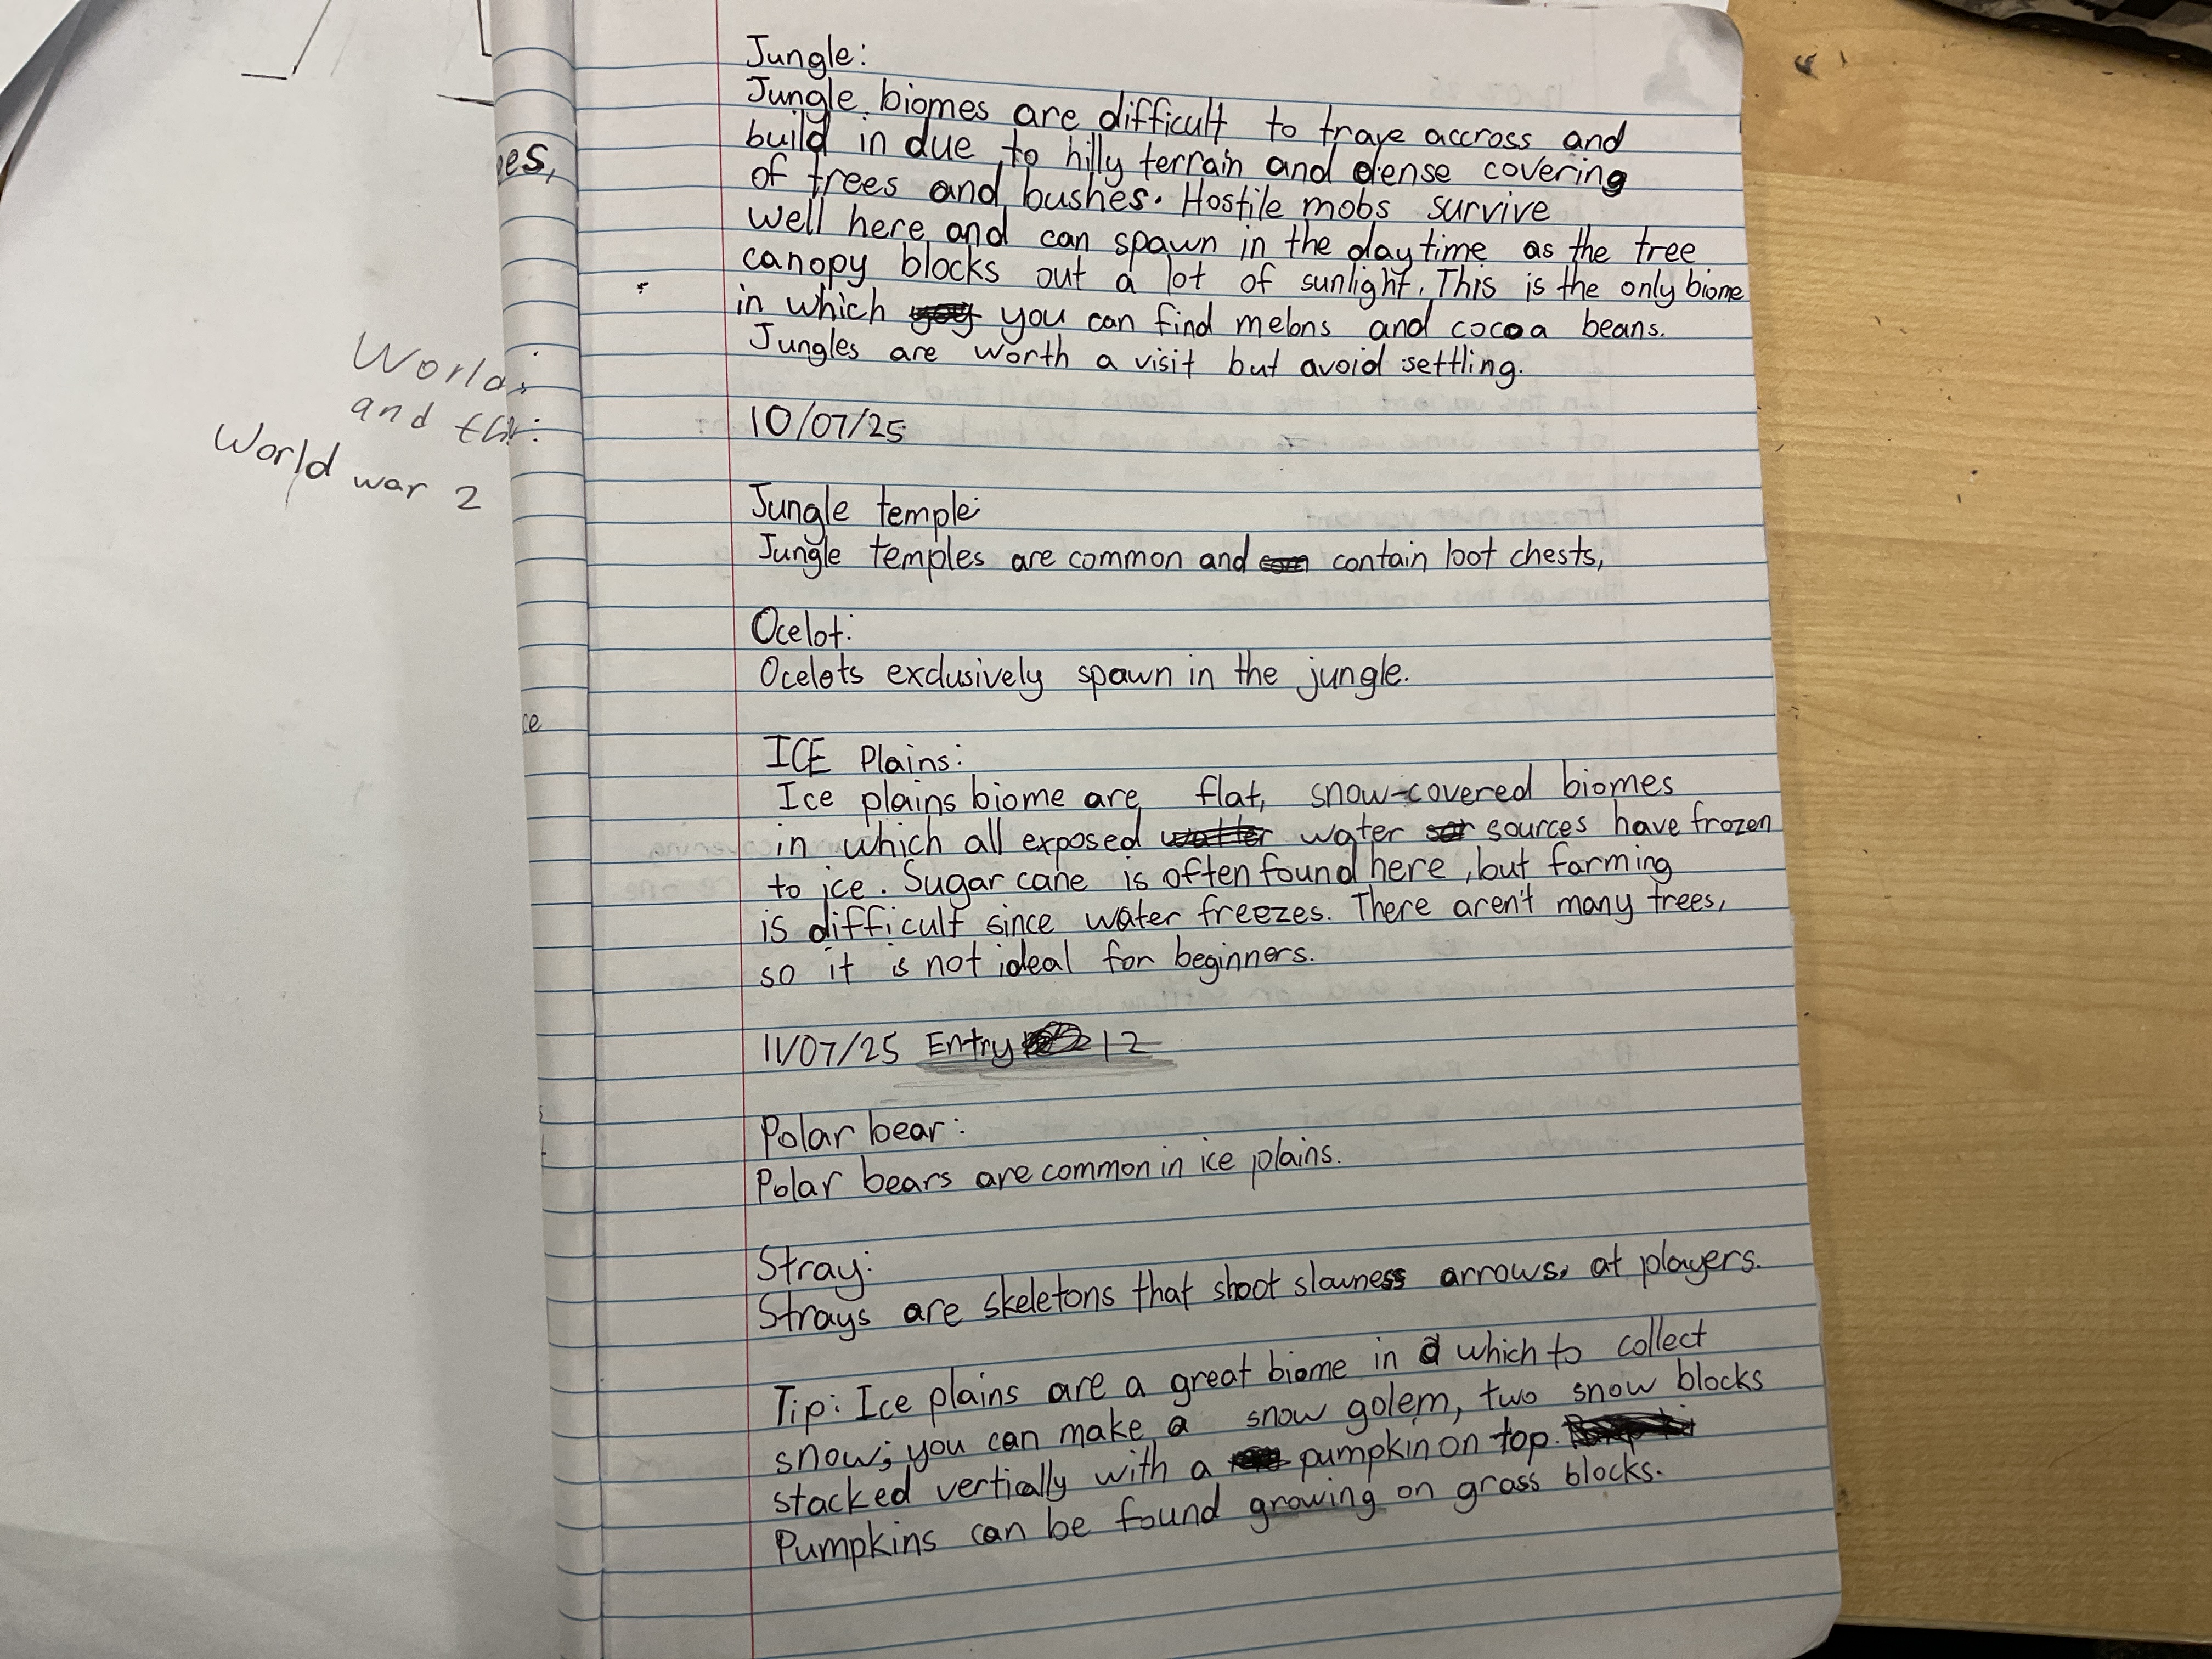 Jungle:
Jungle biomes are difficult to trave accross and
build in due to hilly terrain and dense covering
of trees and bushes. Hostile mobs survive
well here and can spawn in the daytime as the tree
canopy blocks out a lot of sunlight. This is the only biome
in which you can find melons and cocoa beans.
Jungles are worth a visit but avoid settling.
10/07/25
Jungle temple:
Jungle temples are common and contain loot chests,
Ocelot:
Ocelots exclusively spawn in the jungle.
ICE Plains:
Ice plains biome are flat, snow-covered biomes
in which all exposed water sources have frozen
to ice. Sugar cane is often found here, but farming
is difficult since water freezes. There aren't many trees,
so it is not ideal for beginners.
11/07/25 Entry 12
Polar bear:
Polar bears are common in ice plains.
Stray:
Strays are skeletons that shoot slowness arrows, at players.
Tip: Ice plains are a great biome in which to collect
snow; you can make a snow golem, two snow blocks
stacked vertically with a pumpkin on top.
Pumpkins can be found growing on grass blocks.
World
and
World war 2